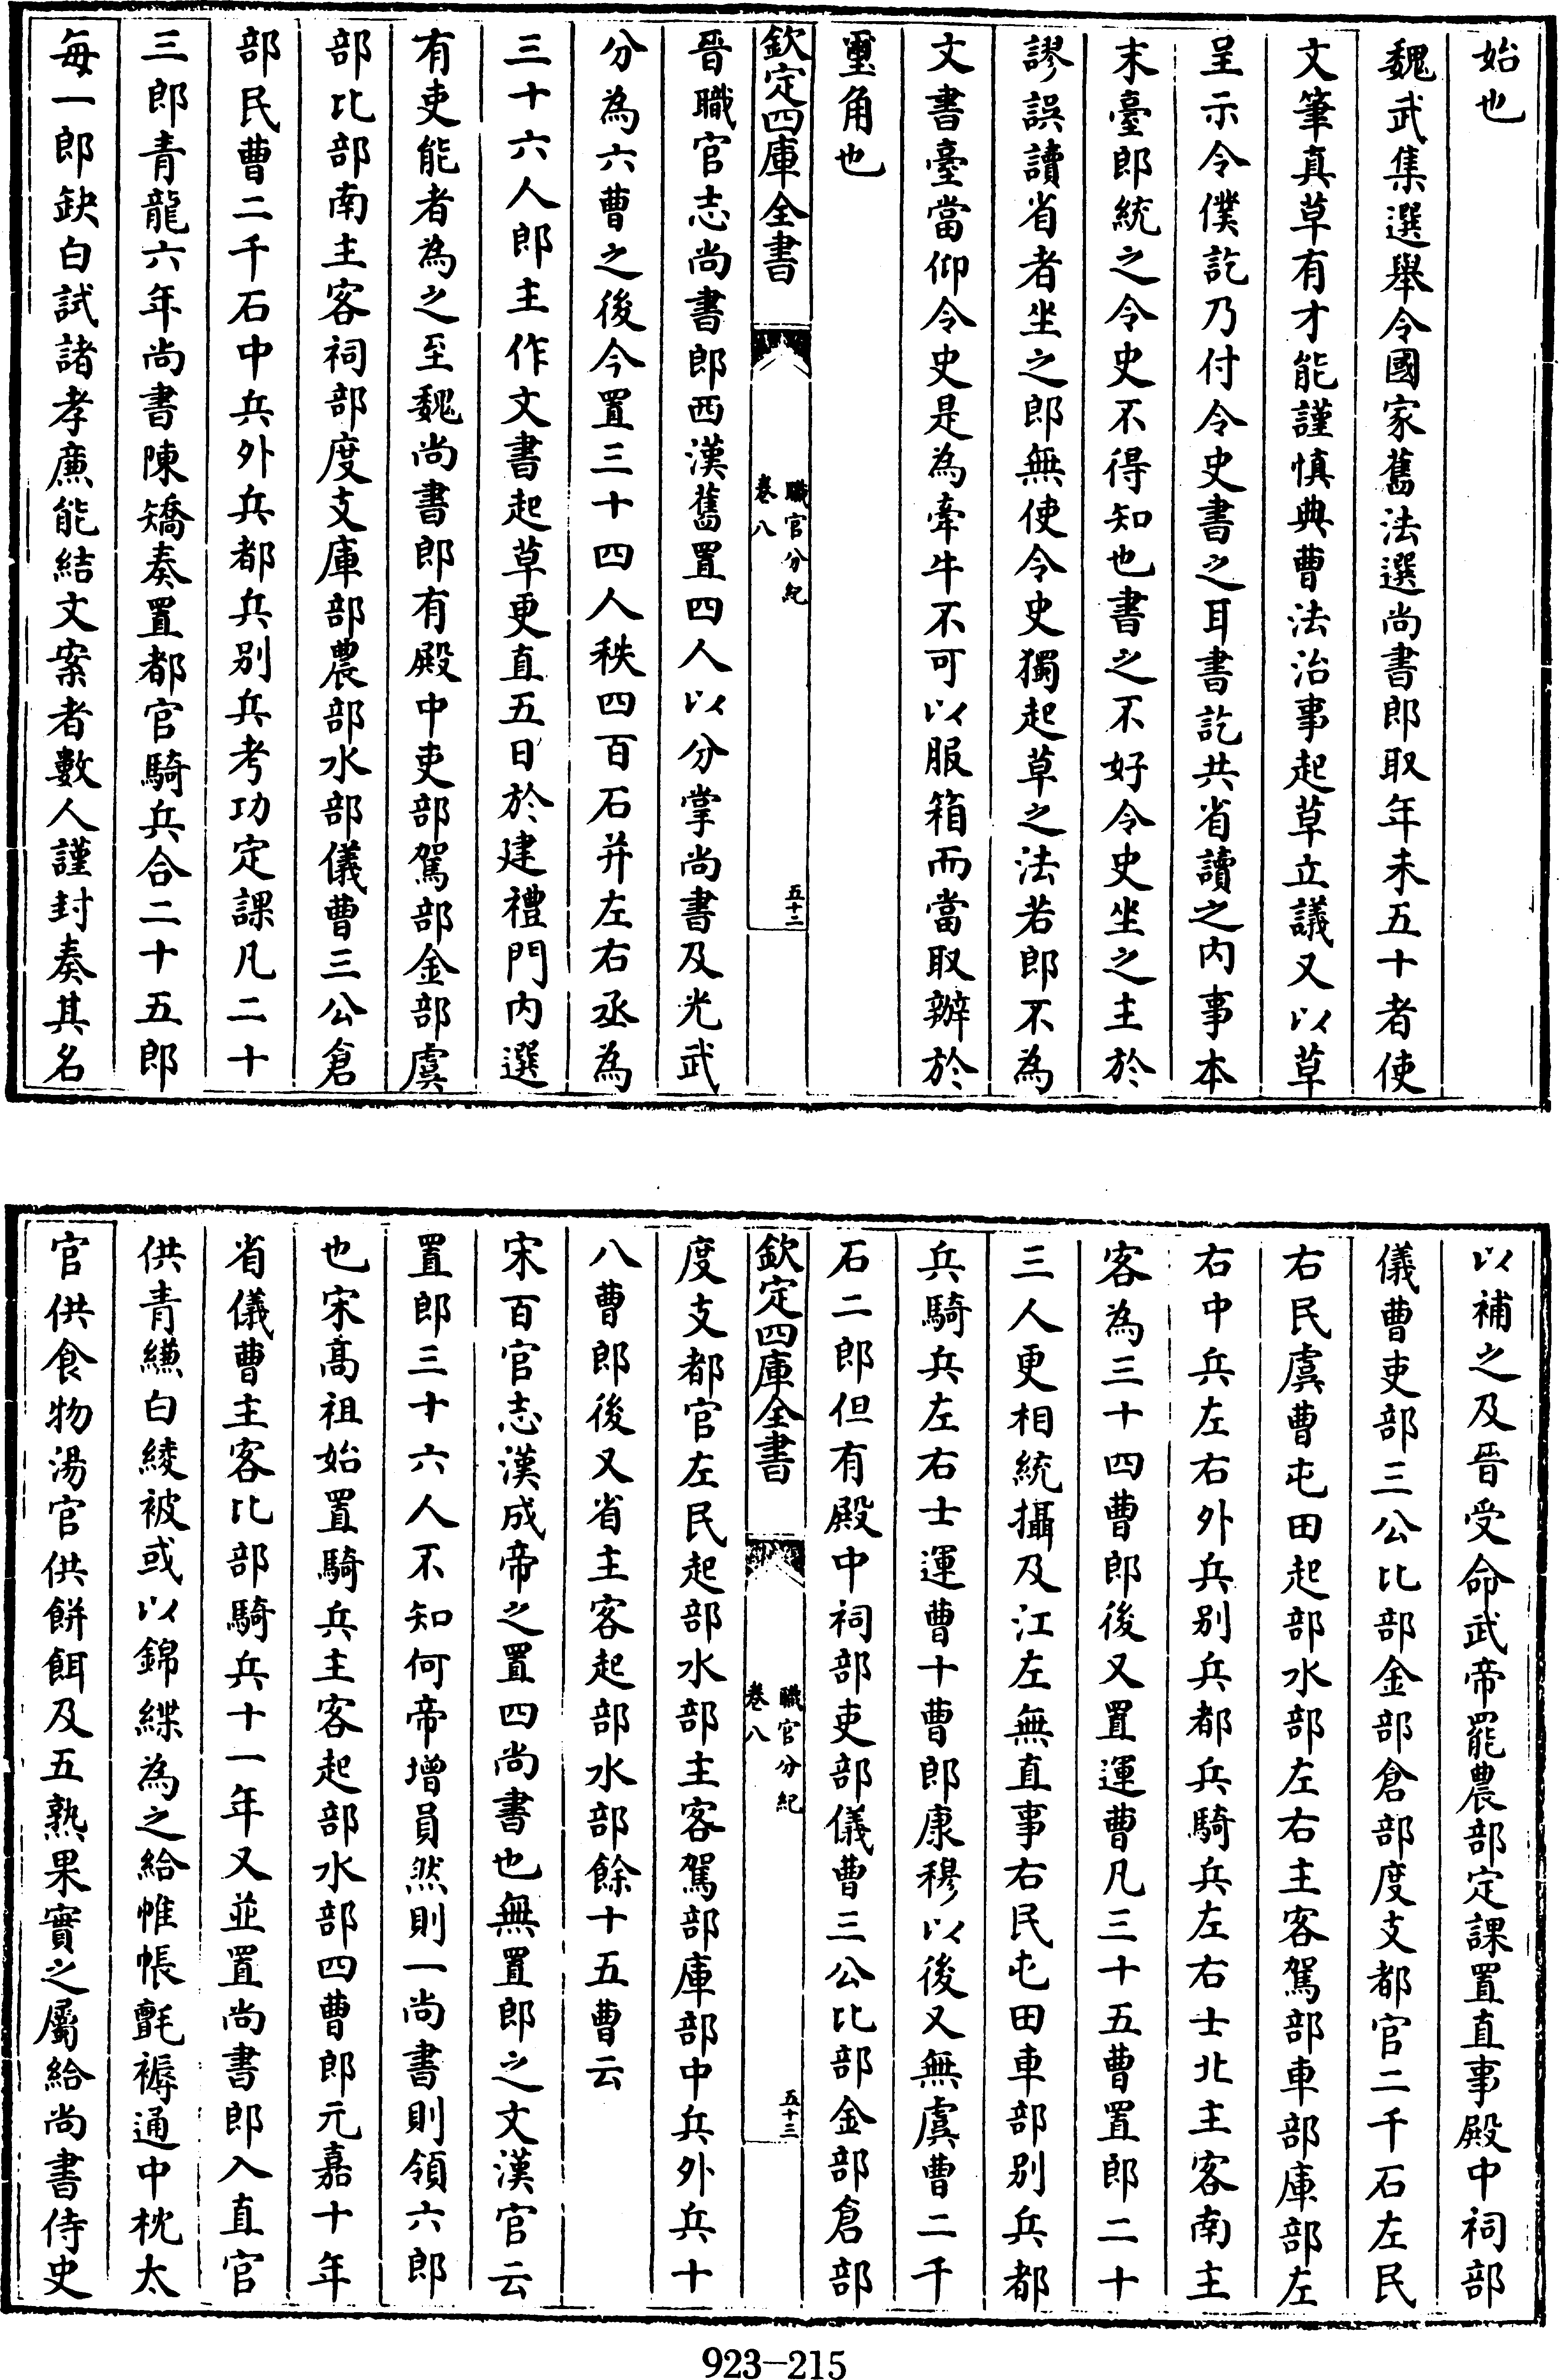 始也
魏武集選舉令國家舊法選尚書郎取年未五十者使
文筆真草有才能謹慎典曹法治事起草立議又以草
呈示令僕訖乃付令史書之耳書訖共省讀之内事本
末臺郎統之令史不得知也書之不好令史坐之主於
謬誤讀省者坐之郎無使令史獨起草之法若郎不為
文書臺當仰令史是為牽牛不可以服箱而當取辦於
璽角也
欽定四庫全書
職官分紀
卷八
五十二
晉職官志尚書郎西漢舊置四人以分掌尚書及光武
分為六曹之後今置三十四人秩四百石并左右丞為
三十六人郎主作文書起草更直五日於建禮門内選
有吏能者為之至魏尚書郎有殿中吏部駕部金部虞
部比部南主客祠部度支庫部農部水部儀曹三公倉
部民曹二千石中兵外兵都兵别兵考功定課凡二十
三郎青龍六年尚書陳矯奏置都官騎兵合二十五郎
每一郎缺白試諸孝廉能結文案者數人謹封奏其名
以補之及晉受命武帝罷農部定課置直事殿中祠部
儀曹吏部三公比部金部倉部度支都官二千石左民
右民虞曹屯田起部水部左右主客駕部車部庫部左
右中兵左右外兵别兵都兵騎兵左右士北主客南主
客為三十四曹郎後又置運曹凡三十五曹置郎二十
三人更相統攝及江左無直事右民屯田車部别兵都
兵騎兵左右士運曹十曹郎康穆以後又無虞曹二千
石二郎但有殿中祠部吏部儀曹三公比部金部倉部
欽定四庫全書
職官分紀
卷八
五十三
度支都官左民起部水部主客駕部庫部中兵外兵十
八曹郎後又省主客起部水部餘十五曹云
宋百官志漢成帝之置四尚書也無置郎之文漢官云
置郎三十六人不知何帝增員然則一尚書則領六郎
也宋高祖始置騎兵主客起部水部四曹郎元嘉十年
省儀曹主客比部騎兵十一年又並置尚書郎入直官
供青縑白綾被或以錦緤為之給帷帳氈褥通中枕太
官供食物湯官供餅餌及五熟果實之屬給尚書侍史
923-215